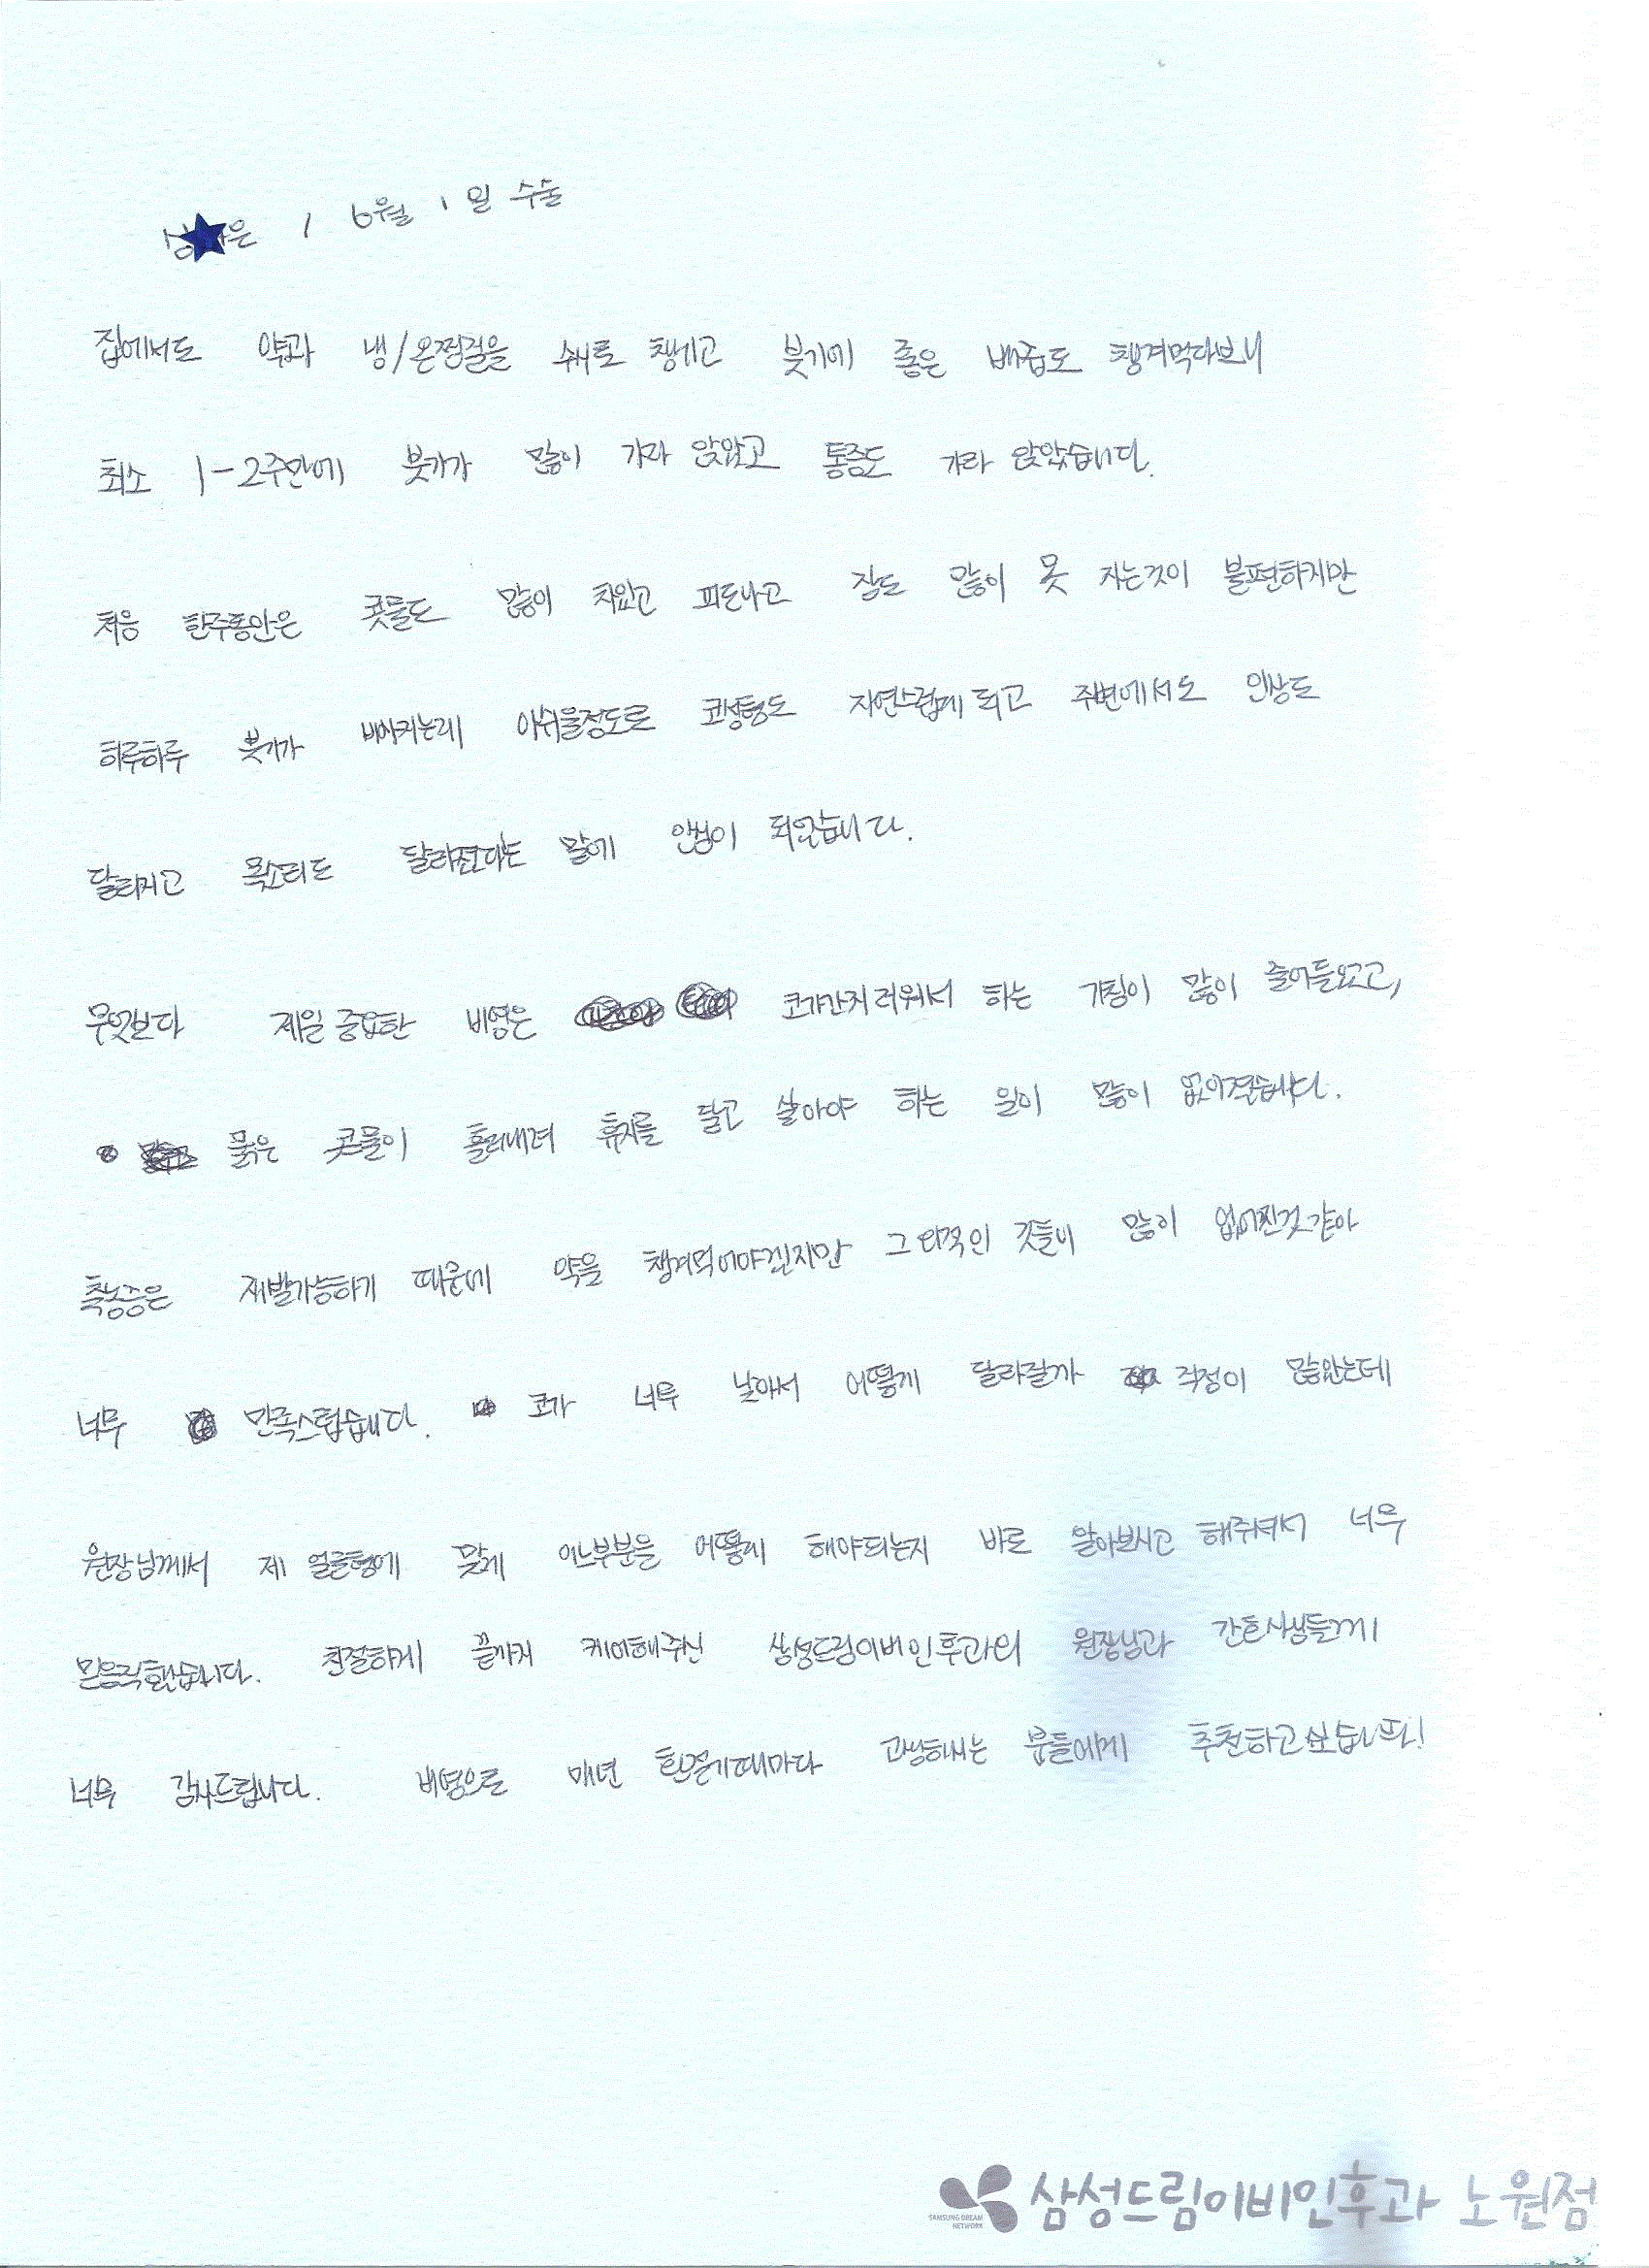 은 / 6월 1일 수술
집에서도 약과 냉/온찜질을 수시로 챙기고 붓기에 좋은 배즙도 챙겨먹다보니
최소 1-2주만에 붓기가 많이 가라 앉았고 통증도 가라 앉았습니다.
처음 한주동안은 콧물도 많이 차있고 피도나고 잠도 많이 못 자는것이 불편하지만
하루하루 붓기가 아쉬울정도로 코성형도 자연스럽게 되고 주변에서도 인상도
달라지고 목소리도 달라졌다는 말에 안심이 되었습니다.
무엇보다 제일 중요한 비염은 코가간지러워서 하는 기침이 많이 줄어들었고,
묽은 콧물이 흘러내려 휴지를 달고 살아야 하는 일이 많이 없어졌습니다.
축농증은 재발가능하기 때문에 약을 챙겨먹어야겠지만 그 외적인 것들이 많이 없어진것같아
너무 만족스럽습니다. 코가 너무 낮아서 어떻게 달라질까 걱정이 많았는데
원장님께서 제 얼굴형에 맞게 어느부분을 어떻게 해야되는지 바로 알아보시고 해주셔서 너무
믿음직했습니다. 친절하게 끝까지 케어해주신 삼성드림이비인후과의 원장님과 간호사님들께
너무 감사드립니다. 비염으로 매년 환절기때마다 고생하시는 분들에게 추천하고싶습니다!
삼성드림이비인후과 노원점
SAMSUNG DREAM
NETWORK